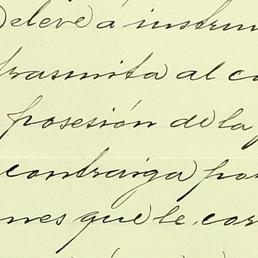 eleve á instru
trasmita al co
posesión de la
contraiga por
nes que le cor